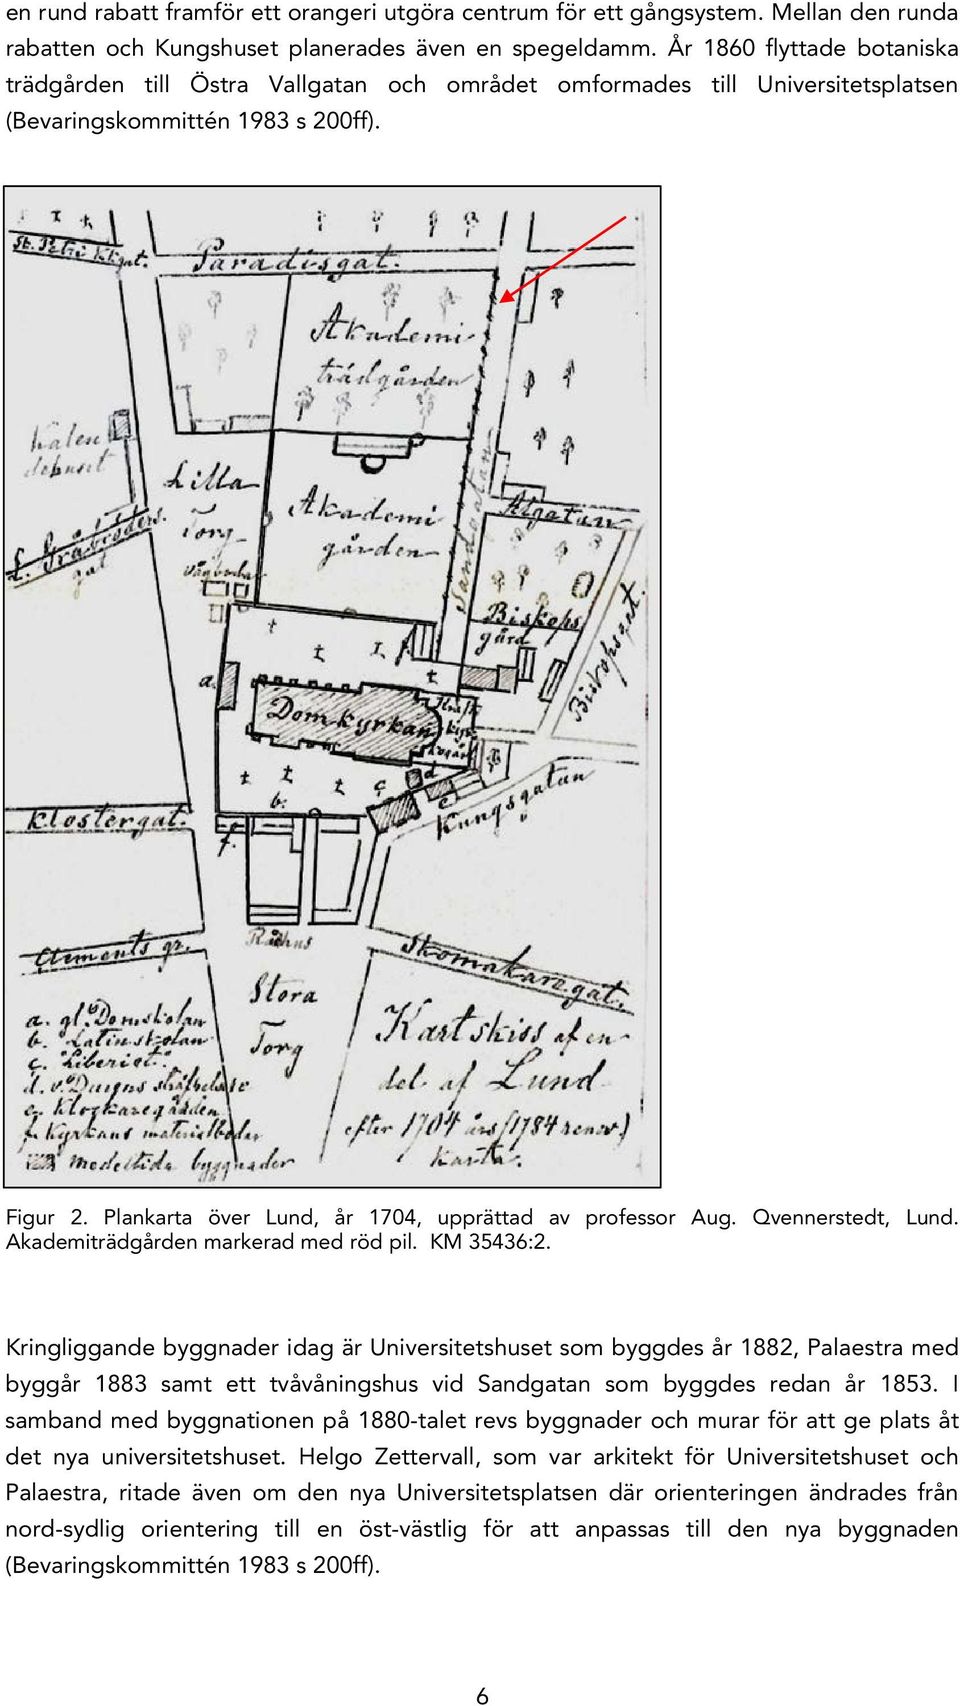 en rund rabatt framför ett orangeri utgöra centrum för ett gångsystem. Mellan den runda
rabatten och Kungshuset planerades även en spegeldamm. År 1860 flyttade botaniska
trädgården till Östra Vallgatan och området omformades till Universitetsplatsen
(Bevaringskommittén 1983 s 200ff).
St. Petri Kkgat.
Paradisgat.
Akademi
trädgården
Lilla
Torg
Akademi
gården
Sandgatan
Algatan
gat
Biskops
gård
Biskopsgat.
a.
f.
Domkyrkan
d
e
b.
ç
Kungsgatan
Klostergat.
f.
Rådhus
Clements gr.
Skomakaregat.
Stora
Torg
a. gl. Domskolan
b. Latinskolan
ç. Liberiet.
e. Klockaregården
f. Kyrkans materialbodar
medeltida byggnader
Kartskiss af en
del af Lund
efter 1704 års (1784 renov.)
karta.
Figur 2. Plankarta över Lund, år 1704, upprättad av professor Aug. Qvennerstedt, Lund.
Akademiträdgården markerad med röd pil. KM 35436:2.
Kringliggande byggnader idag är Universitetshuset som byggdes år 1882, Palaestra med
byggår 1883 samt ett tvåvåningshus vid Sandgatan som byggdes redan år 1853. I
samband med byggnationen på 1880-talet revs byggnader och murar för att ge plats åt
det nya universitetshuset. Helgo Zettervall, som var arkitekt för Universitetshuset och
Palaestra, ritade även om den nya Universitetsplatsen där orienteringen ändrades från
nord-sydlig orientering till en öst-västlig för att anpassas till den nya byggnaden
(Bevaringskommittén 1983 s 200ff).
6